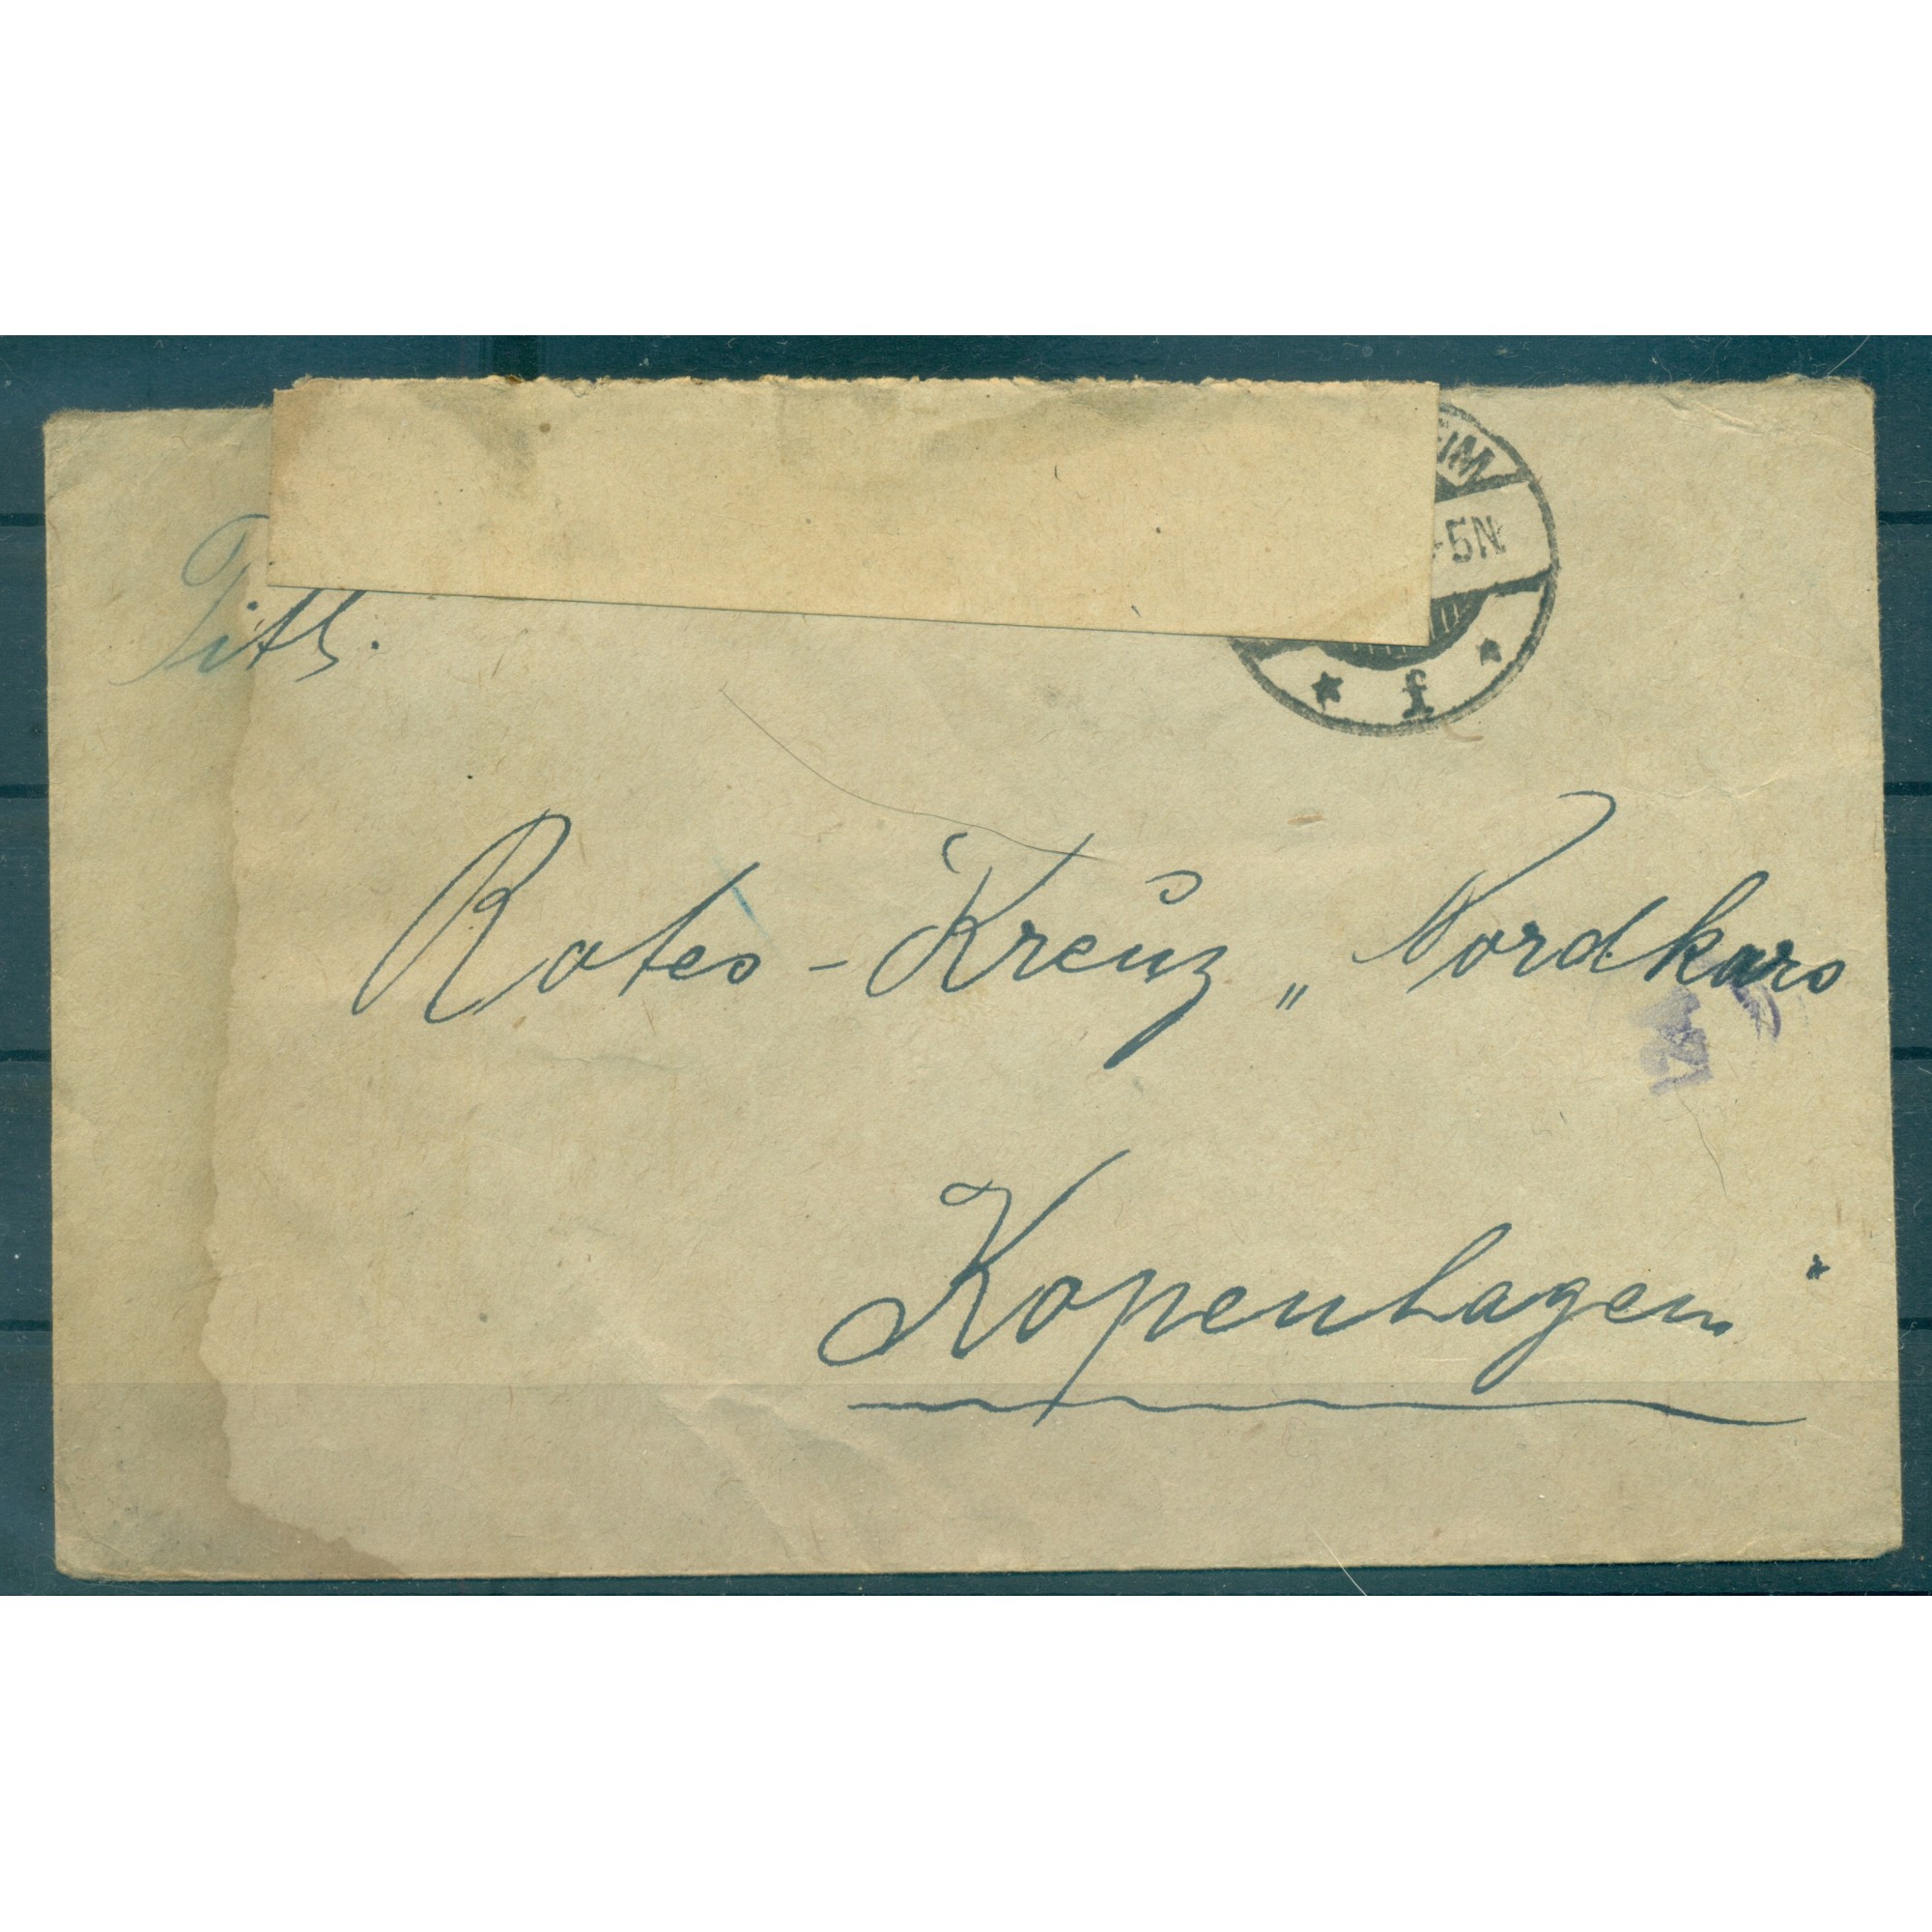 Titl.
EIM
-5N
* f *
Rotes - Kreuz „ Nordkars
Kopenhagen "